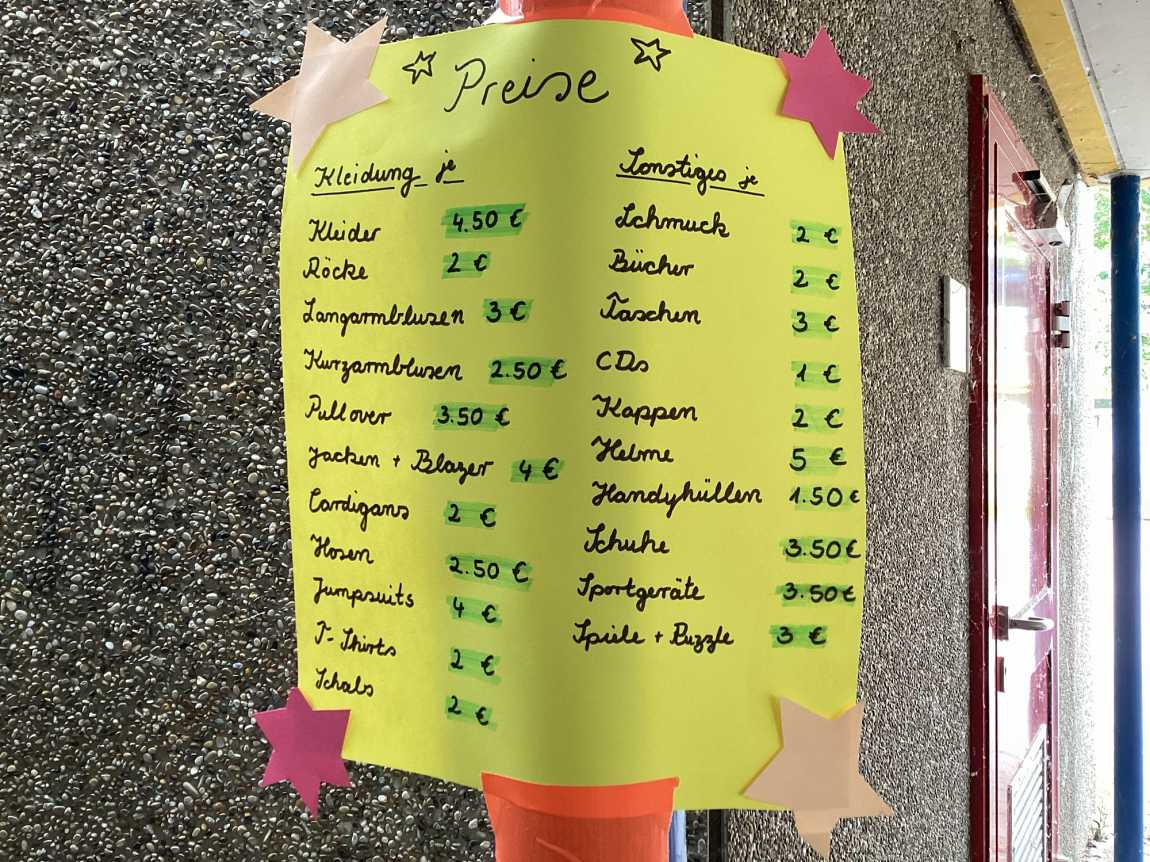 Preise
Kleidung je
Kleider 4.50 €
Röcke 2 €
Langarmblusen 3 €
Kurzarmblusen 2.50 €
Pullover 3.50 €
Jacken + Blazer 4 €
Cardigans 2 €
Hosen 2.50 €
Jumpsuits 4 €
T-Shirts 2 €
Schals 2 €
Sonstiges je
Schmuck 2 €
Bücher 2 €
Taschen 3 €
CDs 1 €
Kappen 2 €
Helme 5 €
Handyhüllen 1.50 €
Schuhe 3.50 €
Sportgeräte 3.50 €
Spiele + Puzzle 3 €